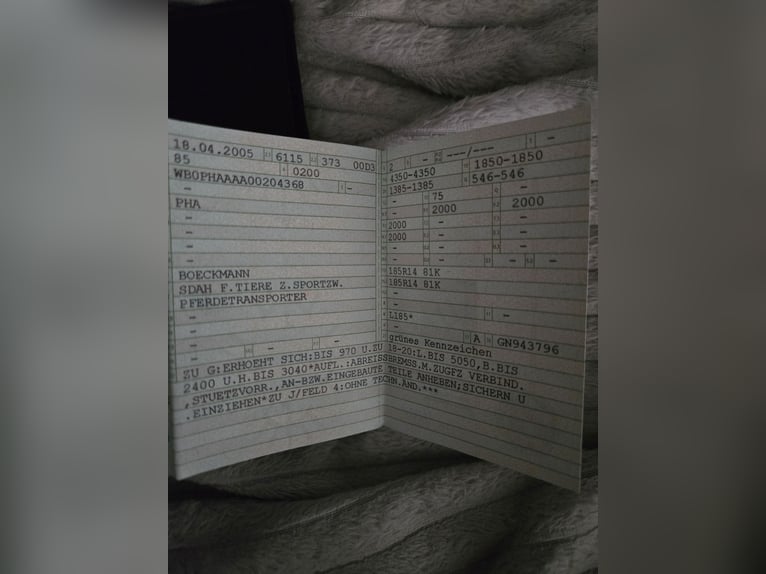 18.04.2005 6115 373 00D3
85 0200
WB0PHAAAA0020436B -
-
PHA
-
-
-
-
BOECKMANN
SDAH F.TIERE Z.SPORTZW.
PFERDETRANSPORTER
- -
-
- - -
2 - ---/--- -
4350-4350 1850-1850
1385-1385 546-546
- 75 -
- 2000 2000
2000 - -
2000 - -
- - -
- - - -
185R14 81K
185R14 81K
-
-
L185* -
-
grünes Kennzeichen A GN943796
ZU G:ERHOEHT SICH:BIS 970 U.ZU 18-20:L.BIS 5050,B.BIS
2400 U.H.BIS 3040*AUFL.:ABREISSBREMSS.M.ZUGFZ VERBIND.
,STUETZVORR.,AN-BZW.EINGEBAUTE TEILE ANHEBEN;SICHERN U
.EINZIEHEN*ZU J/FELD 4:OHNE TECHN.AND.***